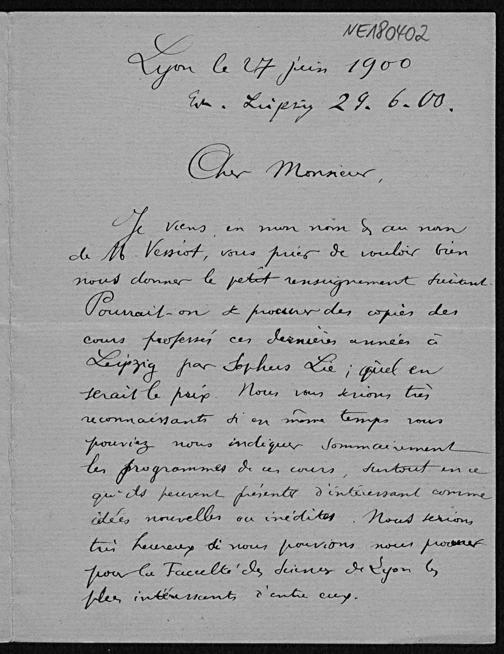 NE180402
Lyon le 27 juin 1900
Leipzig 29.6.00.
Cher Monsieur,
Je viens, en mon nom & au nom
de M. Vessiot, vous prier de vouloir bien
nous donner le petit renseignement suivant.
Pourrait-on se procurer des copies des
cours professés ces dernières années à
Leipzig par Sophus Lie ; quel en
serait le prix. Nous vous serions très
reconnaissants si en même temps vous
pouviez nous indiquer sommairement
les programmes de ces cours, surtout en ce
qu'ils peuvent présenter d'intéressant comme
idées nouvelles ou inédites. Nous serions
très heureux si nous pouvions nous procurer
pour la Faculté des Sciences de Lyon les
plus intéressants d'entre eux.